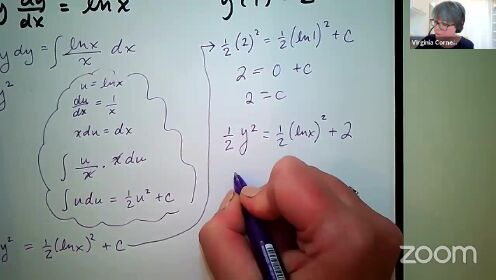 dy/dx = lnx
y dy = ∫ lnx/x dx
u = lnx
du/dx = 1/x
x du = dx
∫ u/x · x du
∫ u du = 1/2 u² + C
y² = 1/2 (lnx)² + C
1/2 (2)² = 1/2 (ln1)² + C
2 = 0 + C
2 = C
1/2 y² = 1/2 (lnx)² + 2
Virginia Corne...
zoom